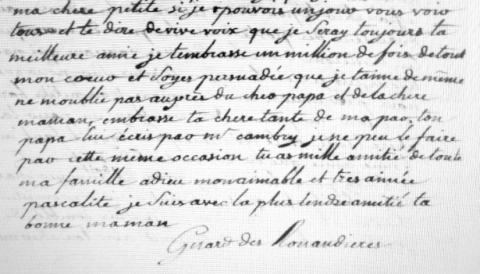 ma chere petite si je pouvois un jour vous voir
tous et te dire de vive voix que je seray toujours ta
meilleure amie je tembrasse un million de fois de tout
mon coeur et soyes persuadée que je taime de même
ne moublie pas aupres du cher papa et de la chere
maman, embrasse ta chere tante de ma par. ton
papa lui ecris par mr cambry je ne peu le faire
par cette même occasion tu as mille amitié de toute
ma famille adieu mon aimable et tres aimée
pascalite je suis avec la plus tendre amitié ta
bonne maman
Gerard des Rouaudieres